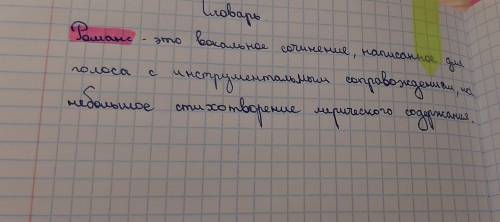 Словарь
Романс - это вокальное сочинение, написанное для
голоса с инструментальным сопровождением, на
небольшое стихотворение лирического содержания.